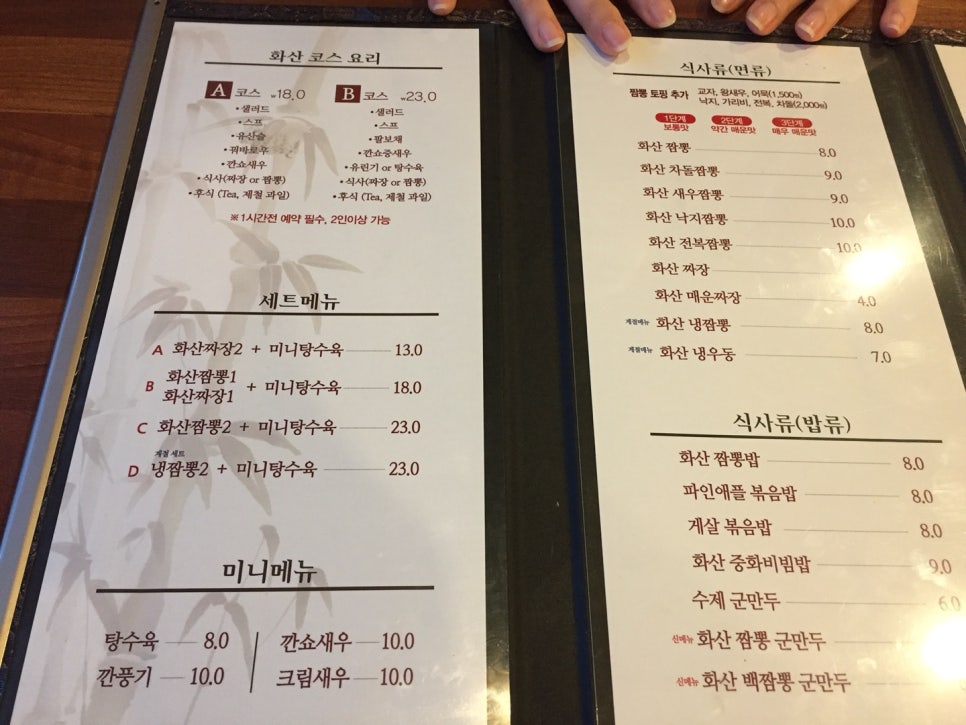 화산 코스 요리
A 코스 ₩18.0
•샐러드
•스프
•유산슬
•꿔바로우
•깐쇼새우
•식사(짜장 or 짬뽕)
•후식 (Tea, 제철 과일)
B 코스 ₩23.0
•샐러드
•스프
•팔보채
•깐쇼중새우
•유린기 or 탕수육
•식사(짜장 or 짬뽕)
•후식 (Tea, 제철 과일)
※1시간전 예약 필수, 2인이상 가능
세트메뉴
A 화산짜장2 + 미니탕수육 13.0
B 화산짬뽕1 화산짜장1 + 미니탕수육 18.0
C 화산짬뽕2 + 미니탕수육 23.0
계절 세트
D 냉짬뽕2 + 미니탕수육 23.0
미니메뉴
탕수육 8.0
깐풍기 10.0
깐쇼새우 10.0
크림새우 10.0
식사류(면류)
짬뽕 토핑 추가 교자, 왕새우, 어묵(1,500원)
낙지, 가리비, 전복, 차돌(2,000원)
1단계 2단계 3단계
보통맛 약간 매운맛 매우 매운맛
화산 짬뽕 8.0
화산 차돌짬뽕 9.0
화산 새우짬뽕 9.0
화산 낙지짬뽕 10.0
화산 전복짬뽕 10.0
화산 짜장
화산 매운짜장 4.0
계절메뉴 화산 냉짬뽕 8.0
계절메뉴 화산 냉우동 7.0
식사류(밥류)
화산 짬뽕밥 8.0
파인애플 볶음밥 8.0
게살 볶음밥 8.0
화산 중화비빔밥 9.0
수제 군만두 6.0
신메뉴 화산 짬뽕 군만두
신메뉴 화산 백짬뽕 군만두